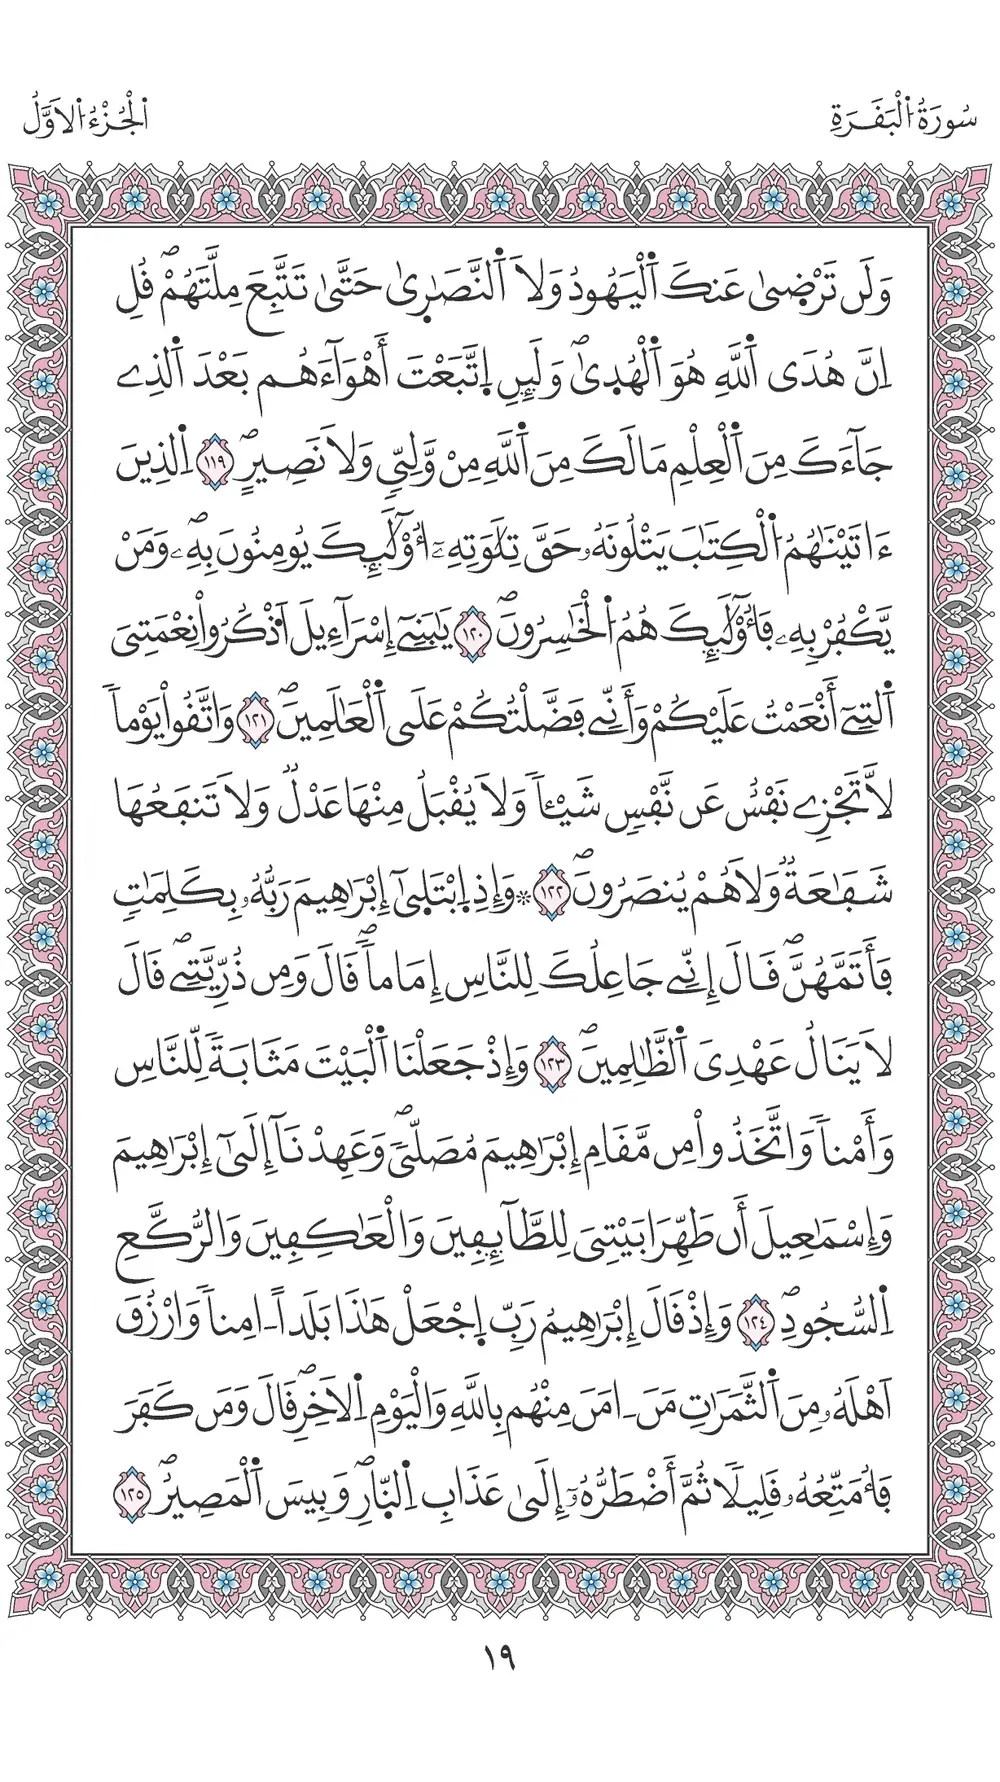 سُورَةُ اُ۬لْبَقَرَةِ
اُ۬لْجُزْءُ اُ۬لَاوَّلُ
وَلَن تَرْضَىٰ عَنكَ اَ۬لْيَهُودُ وَلَا اَ۬لنَّصَٰرَىٰ حَتَّىٰ تَتَّبِعَ مِلَّتَهُمْۖ قُلِ
اِنَّ هُدَى اَ۬للَّهِ هُوَ اَ۬لْهُدَىٰۖ وَلَئِنِ اِ۪تَّبَعْتَ أَهْوَآءَهُم بَعْدَ اَ۬لذِے
جَآءَكَ مِنَ اَ۬لْعِلْمِ مَا لَكَ مِنَ اَ۬للَّهِ مِنْ وَّلِيّٖ وَلَا نَصِيرٍۖ ١١٩ اِ۬لذِينَ
ءَاتَيْنَٰهُمُ اُ۬لْكِتَٰبَ يَتْلُونَهُۥ حَقَّ تِلَٰوَتِهِۦٓ أُوْلَٰٓئِكَ يُومِنُونَ بِهِۦۖ وَمَنْ
يَّكْفُرْ بِهِۦ فَأُوْلَٰٓئِكَ هُمُ اُ۬لْخَٰسِرُونَۖ ١٢٠ يَٰبَنِےٓ إِسْرَآءِيلَ اَ۟ذْكُرُواْ نِعْمَتِيَ
اَ۬لتِےٓ أَنْعَمْتُ عَلَيْكُمْ وَأَنِّے فَضَّلْتُكُمْ عَلَى اَ۬لْعَٰلَمِينَۖ ١٢١ وَاتَّقُواْ يَوْماٗ
لَّا تَجْزِے نَفْسٌ عَن نَّفْسٖ شَيْـٔاٗ وَلَا يُقْبَلُ مِنْهَا عَدْلٞ وَلَا تَنفَعُهَا
شَفَٰعَةٞ وَلَا هُمْ يُنصَرُونَۖ ١٢٢ ۞ وَإِذِ اِ۪بْتَلَىٰٓ إِبْرَٰهِيمَ رَبُّهُۥ بِكَلِمَٰتٖ
فَأَتَمَّهُنَّۖ قَالَ إِنِّے جَاعِلُكَ لِلنَّاسِ إِمَاماٗۖ قَالَ وَمِن ذُرِّيَّتِےۖ قَالَ
لَا يَنَالُ عَهْدِى اَ۬لظَّٰلِمِينَۖ ١٢٣ وَإِذْ جَعَلْنَا اَ۬لْبَيْتَ مَثَابَةٗ لِّلنَّاسِ
وَأَمْناٗ وَاتَّخَذُواْ مِن مَّقَامِ إِبْرَٰهِيمَ مُصَلّٗىۖ وَعَهِدْنَآ إِلَىٰٓ إِبْرَٰهِيمَ
وَإِسْمَٰعِيلَ أَن طَهِّرَا بَيْتِيَ لِلطَّآئِفِينَ وَالْعَٰكِفِينَ وَالرُّكَّعِ
اِ۬لسُّجُودِۖ ١٢٤ وَإِذْ قَالَ إِبْرَٰهِيمُ رَبِّ اِ۪جْعَلْ هَٰذَا بَلَداً اٰمِناٗ وَارْزُقَ
اَهْلَهُۥ مِنَ اَ۬لثَّمَرَٰتِ مَنَ اٰمَنَ مِنْهُم بِاللَّهِ وَالْيَوْمِ اِ۬لَاخِرِۖ قَالَ وَمَن كَفَرَ
فَأُمَتِّعُهُۥ قَلِيلاٗ ثُمَّ أَضْطَرُّهُۥٓ إِلَىٰ عَذَابِ اِ۬لنّ۪ارِۖ وَبِيسَ اَ۬لْمَصِيرُۖ ١٢٥
١٩